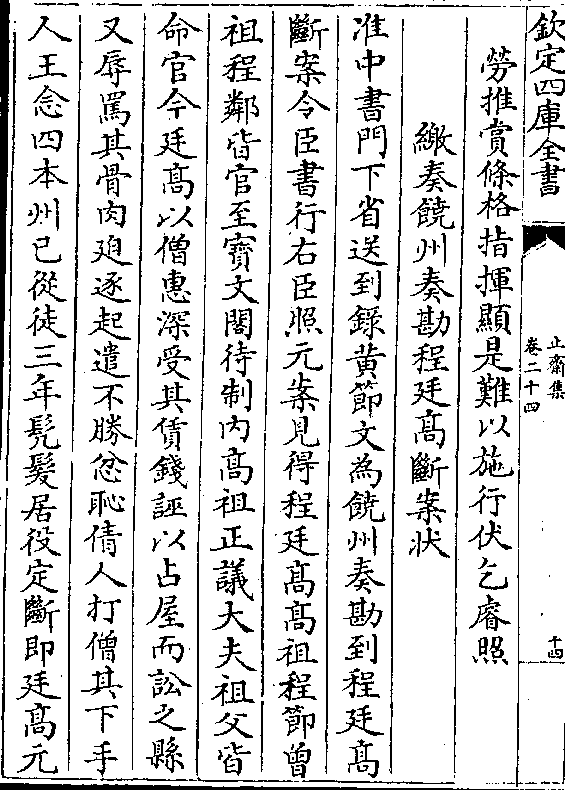 欽定四庫全書
止齋集
卷二十四
十四
勞推賞條格指揮顯是難以施行伏乞睿照
繳奏饒州奏勘程廷高斷案状
准中書門下省送到錄黄節文為饒州奏勘到程廷高
斷案令臣書行右臣照元案見得程廷高高祖程節曾
祖程鄰皆官至寳文閣待制内高祖正議大夫祖父皆
命官今廷高以僧惠深受其賃錢誣以占屋而訟之縣
又辱罵其骨肉廹逐起遣不勝忿恥倩人打僧其下手
人王念四本州已從徒三年髠髮居役定斷即廷高元